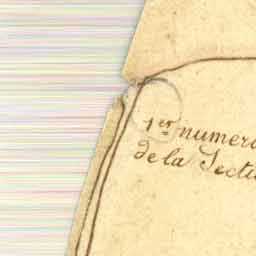 1er numero
de la Secti